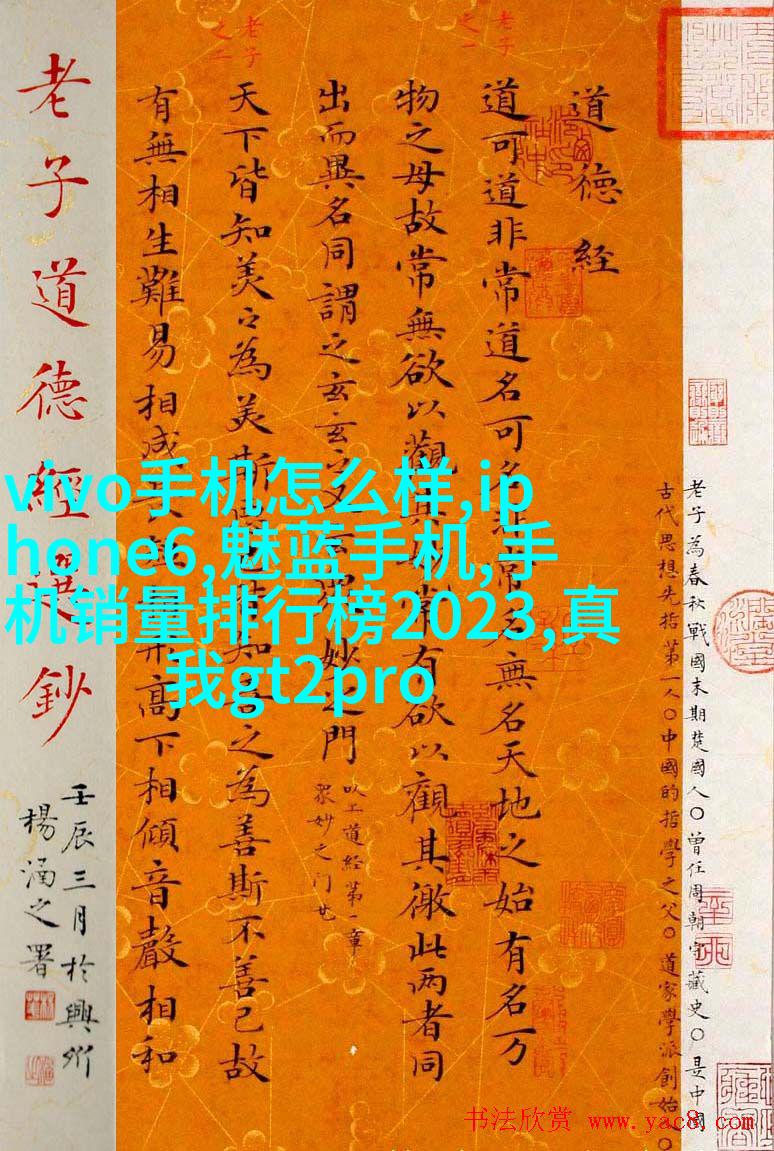 老子為春秋戰國末期楚國人〇曾任周朝守藏史〇是中國
古代思想先哲第一人〇中國的哲學之父〇道家學派創始〇
道德經
老子
之一
道可道非常道名可名非常名無名天地之始有名万
物之母故常無欲以觀其妙常有欲以觀其徼此两者同
出而異名同謂之玄玄之又玄眾妙之門
以上道經第一章
眾妙之门
老子
之二
天下皆知美之為美斯惡已皆知善之為善斯不善已故
有無相生難易相成長短相形高下相傾音聲相和
老子道德經選鈔
壬辰三月於興州
楊涵之署
vivo手机怎么样,ip
hone6,魅蓝手机,手
机销量排行榜2023,真
我gt2pro
书法欣赏 www.yac8.com